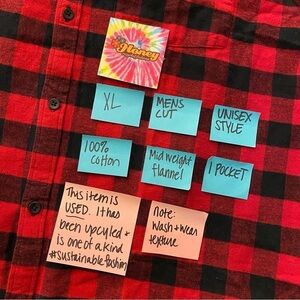 Honey
XL
MENS
CUT
UNISEX
STYLE
100%
Cotton
Mid weight
flannel
1 POCKET
This item is
USED. It has
been upcycled +
is one of a kind
#sustainablefashion
note:
Wash + Wear
texture